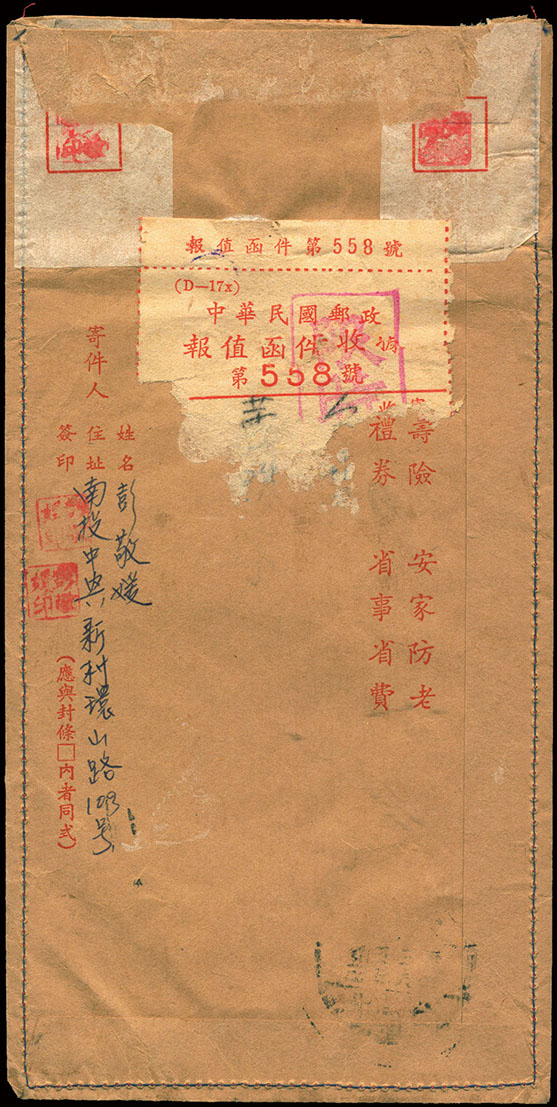 報值函件第558號
(D—17x)
中華民國郵政
報值函件收
第558號
壽險 安家防老
禮券 省事省費
寄件人
姓名 彭敬媛
住址 南投中興新村環山路103号
簽印
(應與封條□內者同式)